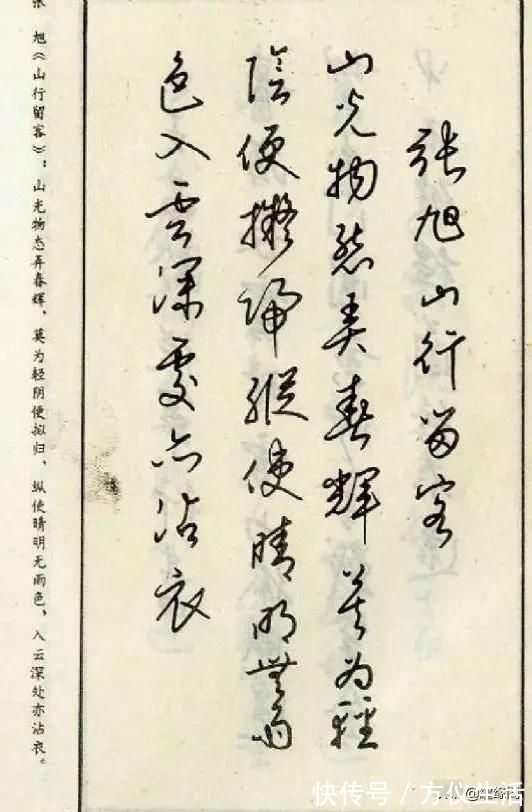 張旭山行留客
山光物態弄春輝莫為輕
陰便擬歸縱使晴明無雨
色入雲深處亦沾衣
张旭《山行留客》：山光物态弄春辉，莫为轻阴便拟归。纵使晴明无雨色，入云深处亦沾衣。
快传号/方仪生活